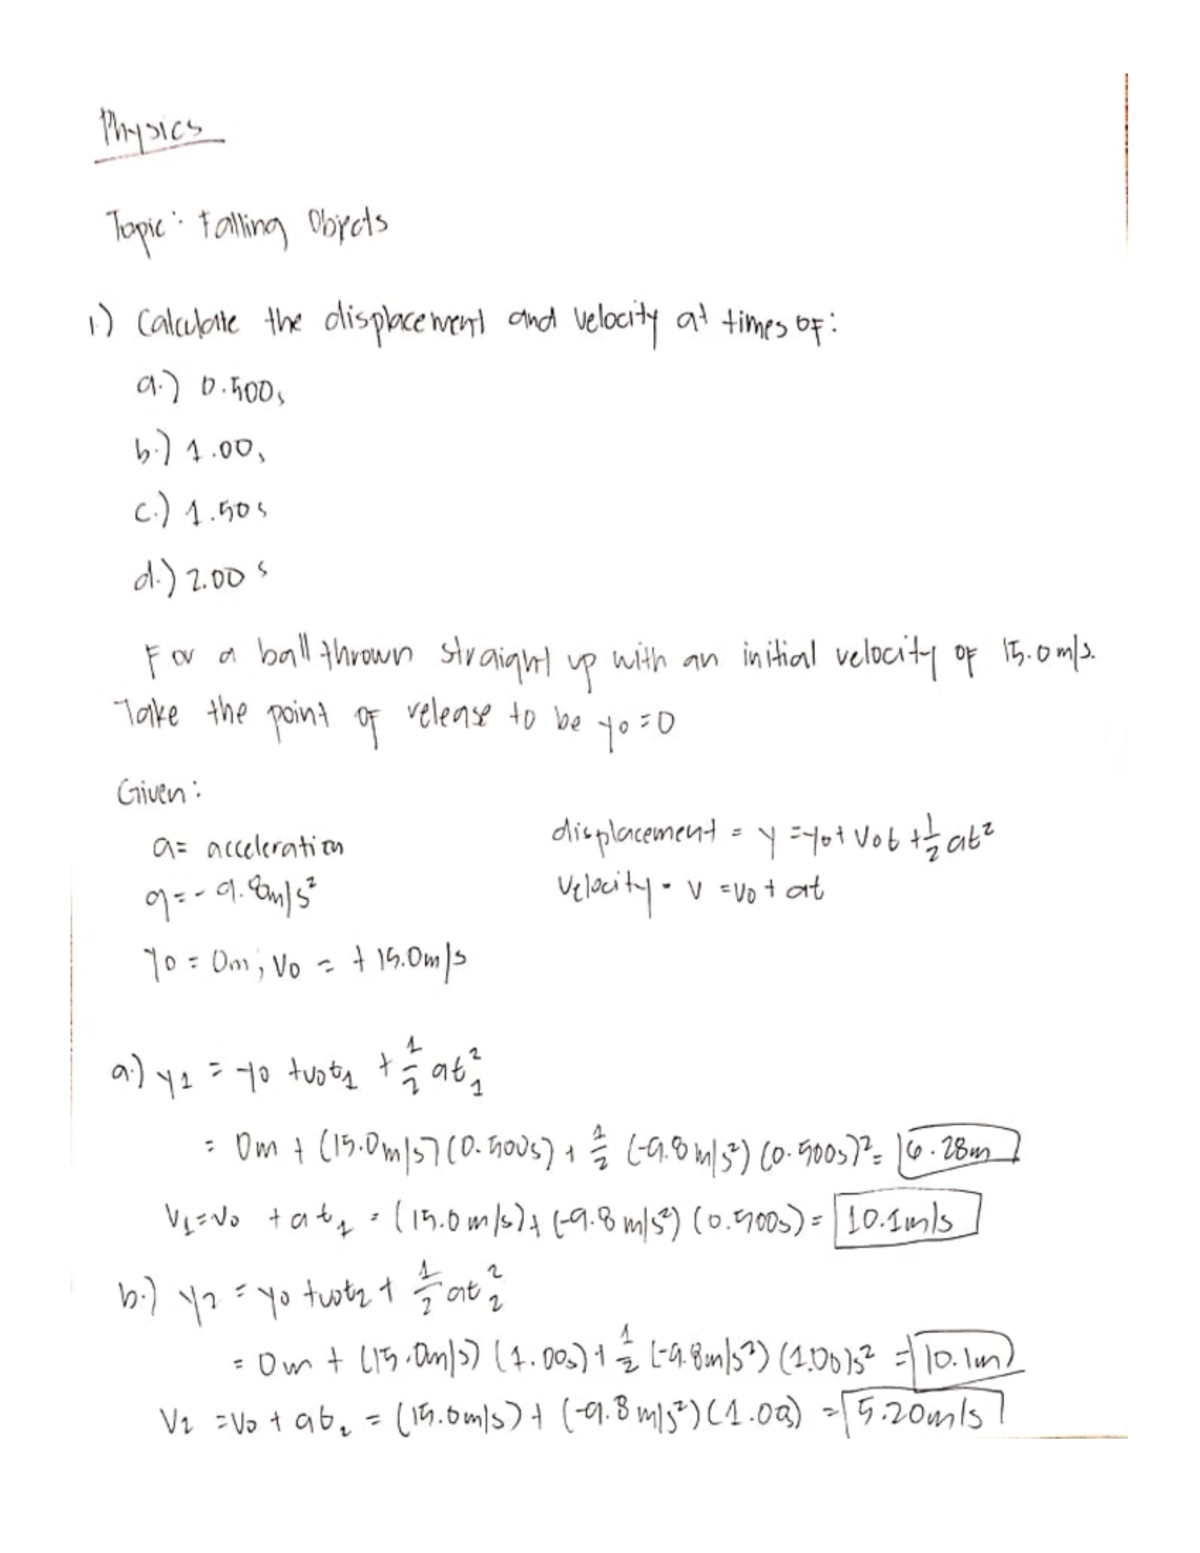 Physics
Topic: Falling Objects
1.) Calculate the displacement and velocity at times of:
a.) 0.500s
b.) 1.00s
c.) 1.50s
d.) 2.00 s
For a ball thrown straight up with an initial velocity of 15.0m/s.
Take the point of release to be y0=0
Given:
a= acceleration
a=-9.8m/s²
y0 = 0m; v0 = +15.0m/s
displacement = y = y0+ v0t + 1/2 at²
velocity = v = v0 + at
a.) y1 = y0 + v0t1 + 1/2 at1²
= 0m + (15.0m/s)(0.500s) + 1/2 (-9.8m/s²)(0.500s)² = 6.28m
v1=v0 + at1 = (15.0m/s)+(-9.8m/s²)(0.500s) = 10.1m/s
b.) y2 = y0 + v0t2 + 1/2 at2²
= 0m + (15.0m/s)(1.00s)+ 1/2 (-9.8m/s²)(1.00)s² = 10.1m
v2 = v0 + at2 = (15.0m/s)+(-9.8m/s²)(1.00s) = 5.20m/s